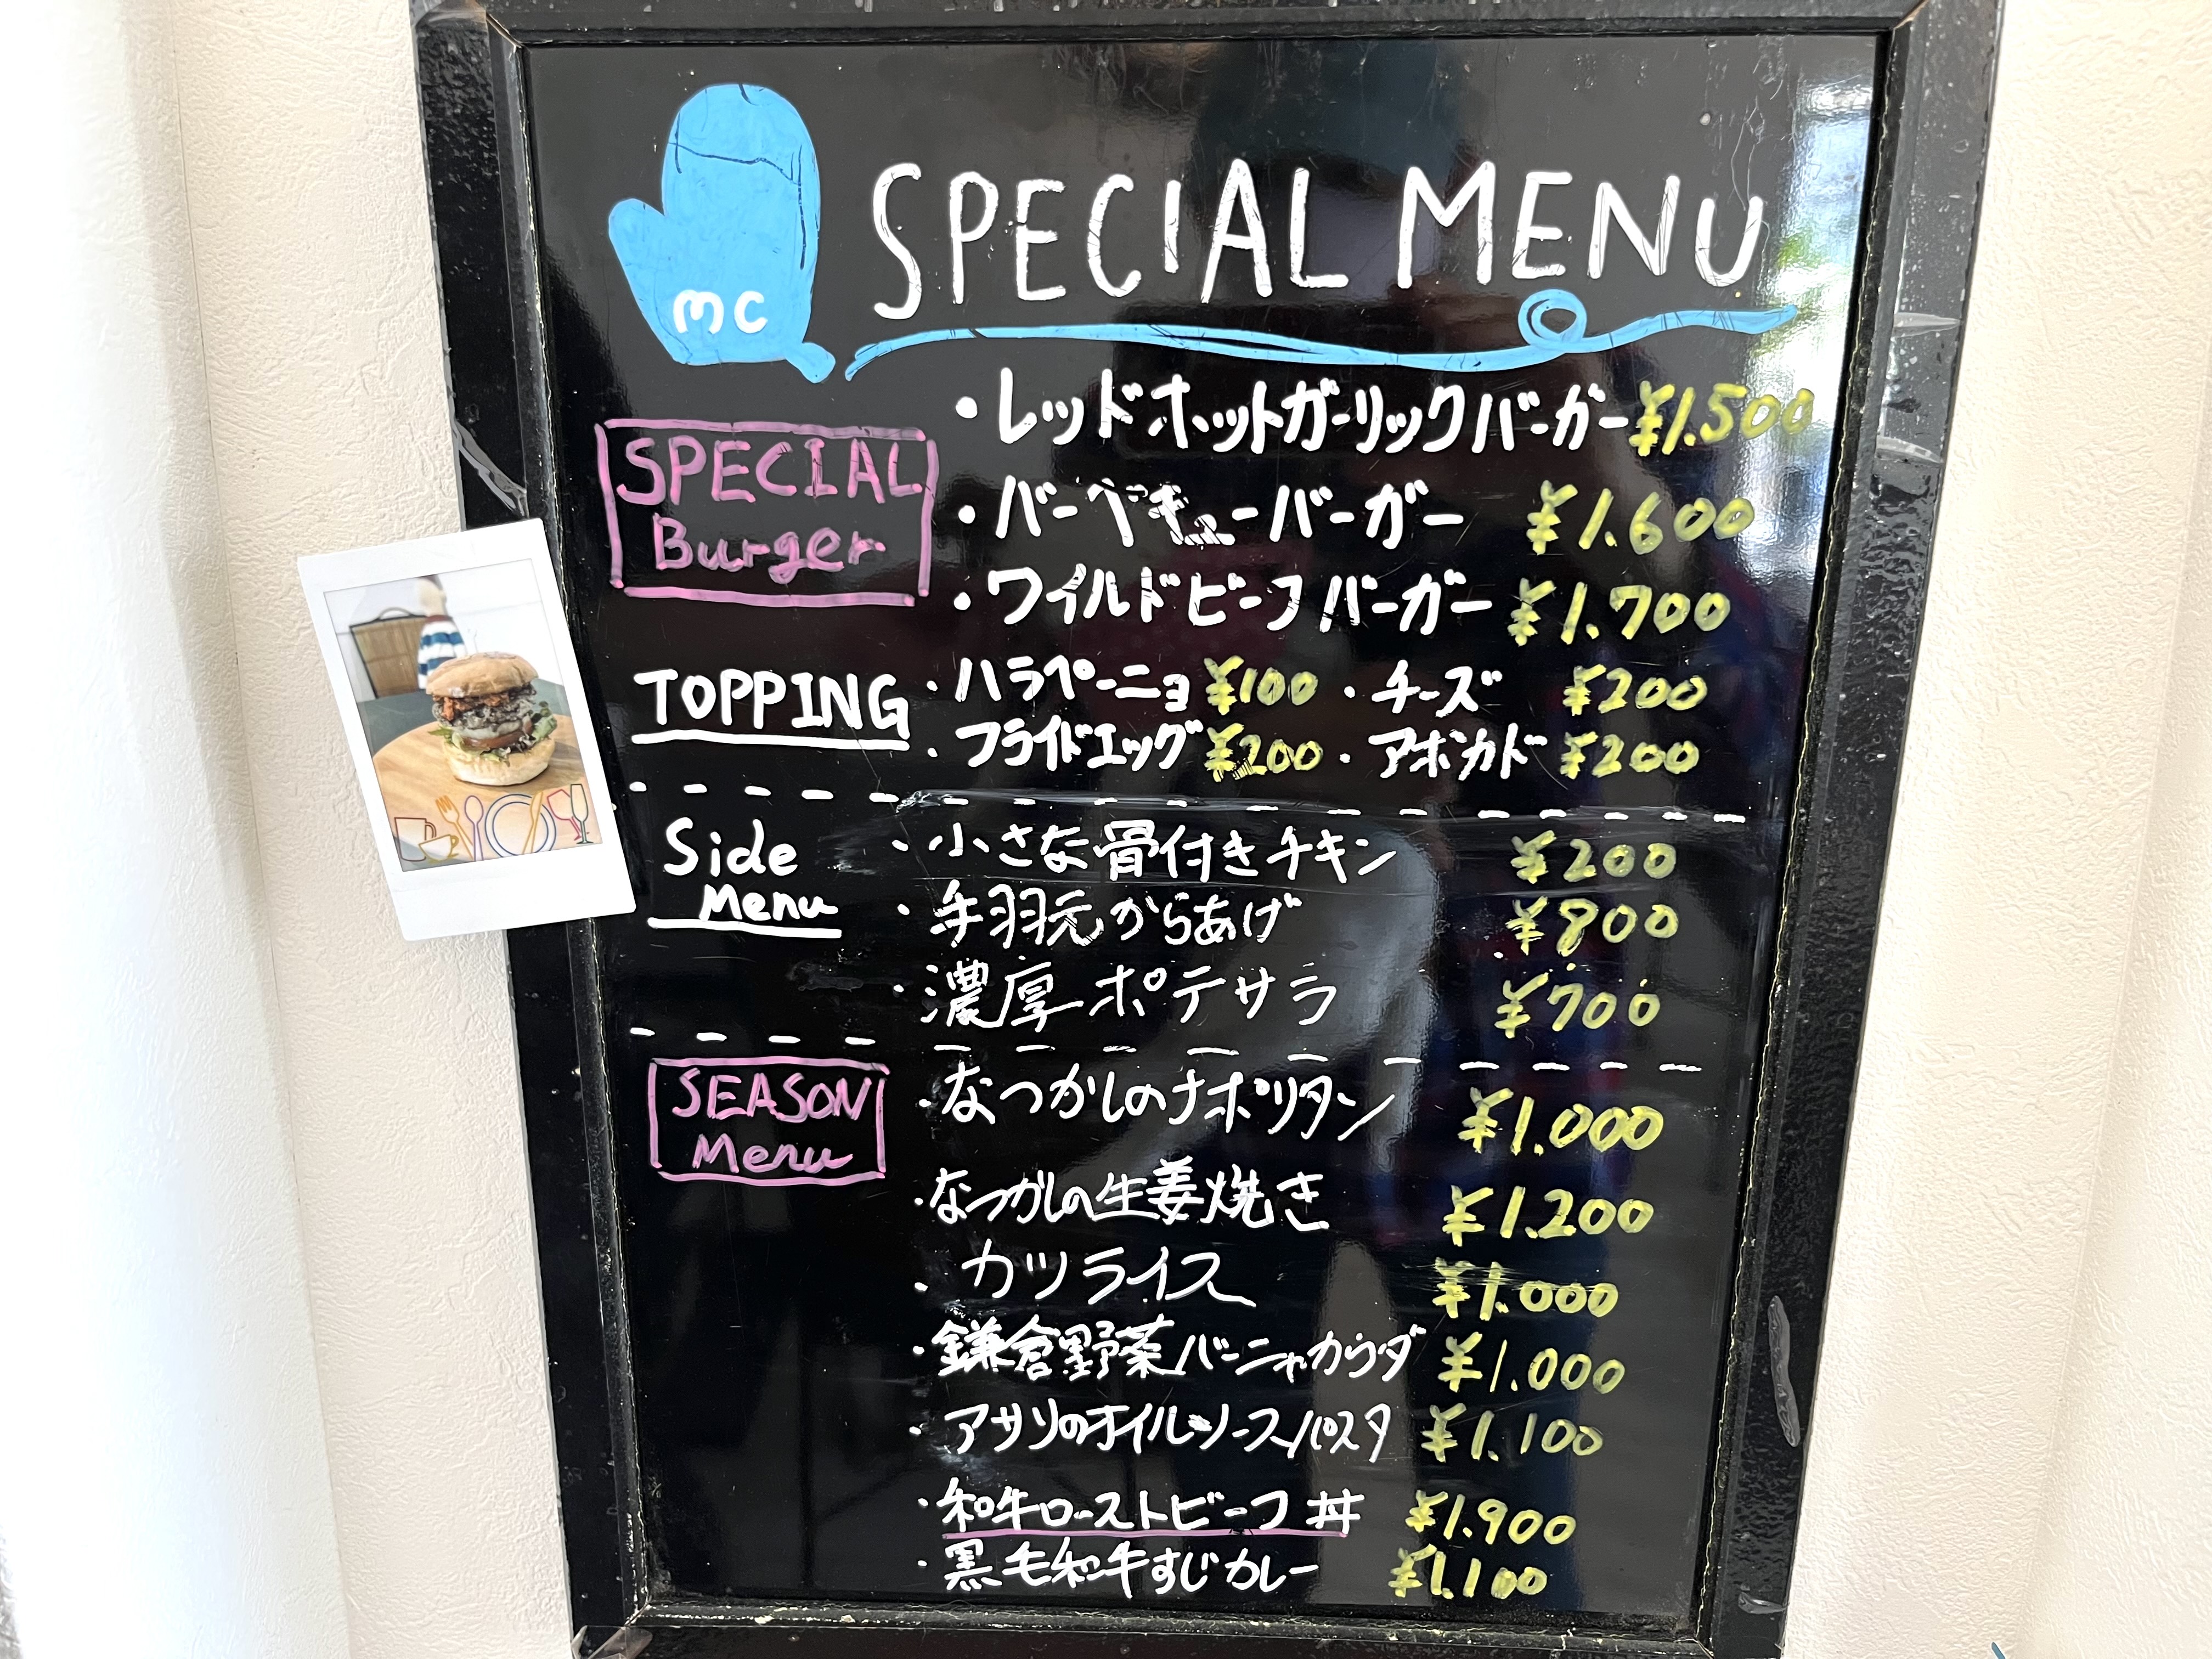 mc
SPECIAL MENU
SPECIAL
Burger
・レッドホットガーリックバーガー ¥1.500
・バーベキューバーガー ¥1.600
・ワイルドビーフバーガー ¥1.700
TOPPING
・ハラペーニョ ¥100 ・チーズ ¥200
・フライドエッグ ¥200 ・アボカド ¥200
Side
Menu
・小さな骨付きチキン ¥200
・手羽元からあげ ¥800
・濃厚ポテサラ ¥700
SEASON
Menu
・なつかしのナポリタン ¥1.000
・なつかしの生姜焼き ¥1.200
・カツライス ¥1.000
・鎌倉野菜バーニャカウダ ¥1.000
・アサリのオイルソースパスタ ¥1.100
・和牛ローストビーフ丼 ¥1.900
・黒毛和牛すじカレー ¥1.100